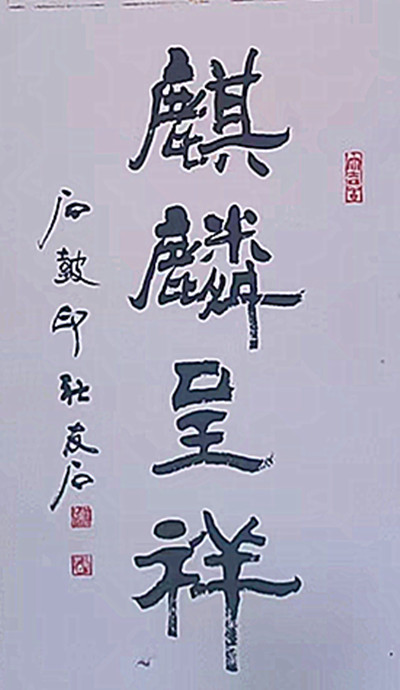 麒麟呈祥
石鼓印社友石